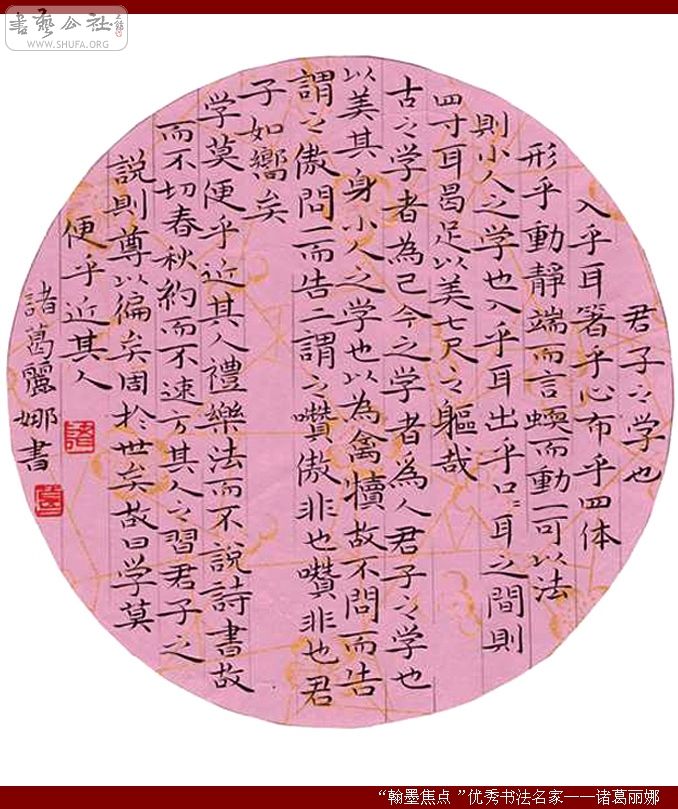 書藝公社
WWW.SHUFA.ORG
君子之学也
入乎耳箸乎心布乎四体
形乎動靜端而言蝡而動一可以法
則小人之学也入乎耳出乎口〻耳之間則
四寸耳曷足以美七尺之軀哉
古之学者為己今之学者為人君子之学也
以美其身小人之学也以為禽犢故不問而告
謂之傲問一而告二謂之囋傲非也囋非也君
子如嚮矣
学莫便乎近其人禮樂法而不説詩書故
而不切春秋約而不速方其人之習君子之
説則尊以徧矣周於世矣故曰学莫
便乎近其人
諸葛麗娜書
“翰墨焦点 ”优秀书法名家——诸葛丽娜